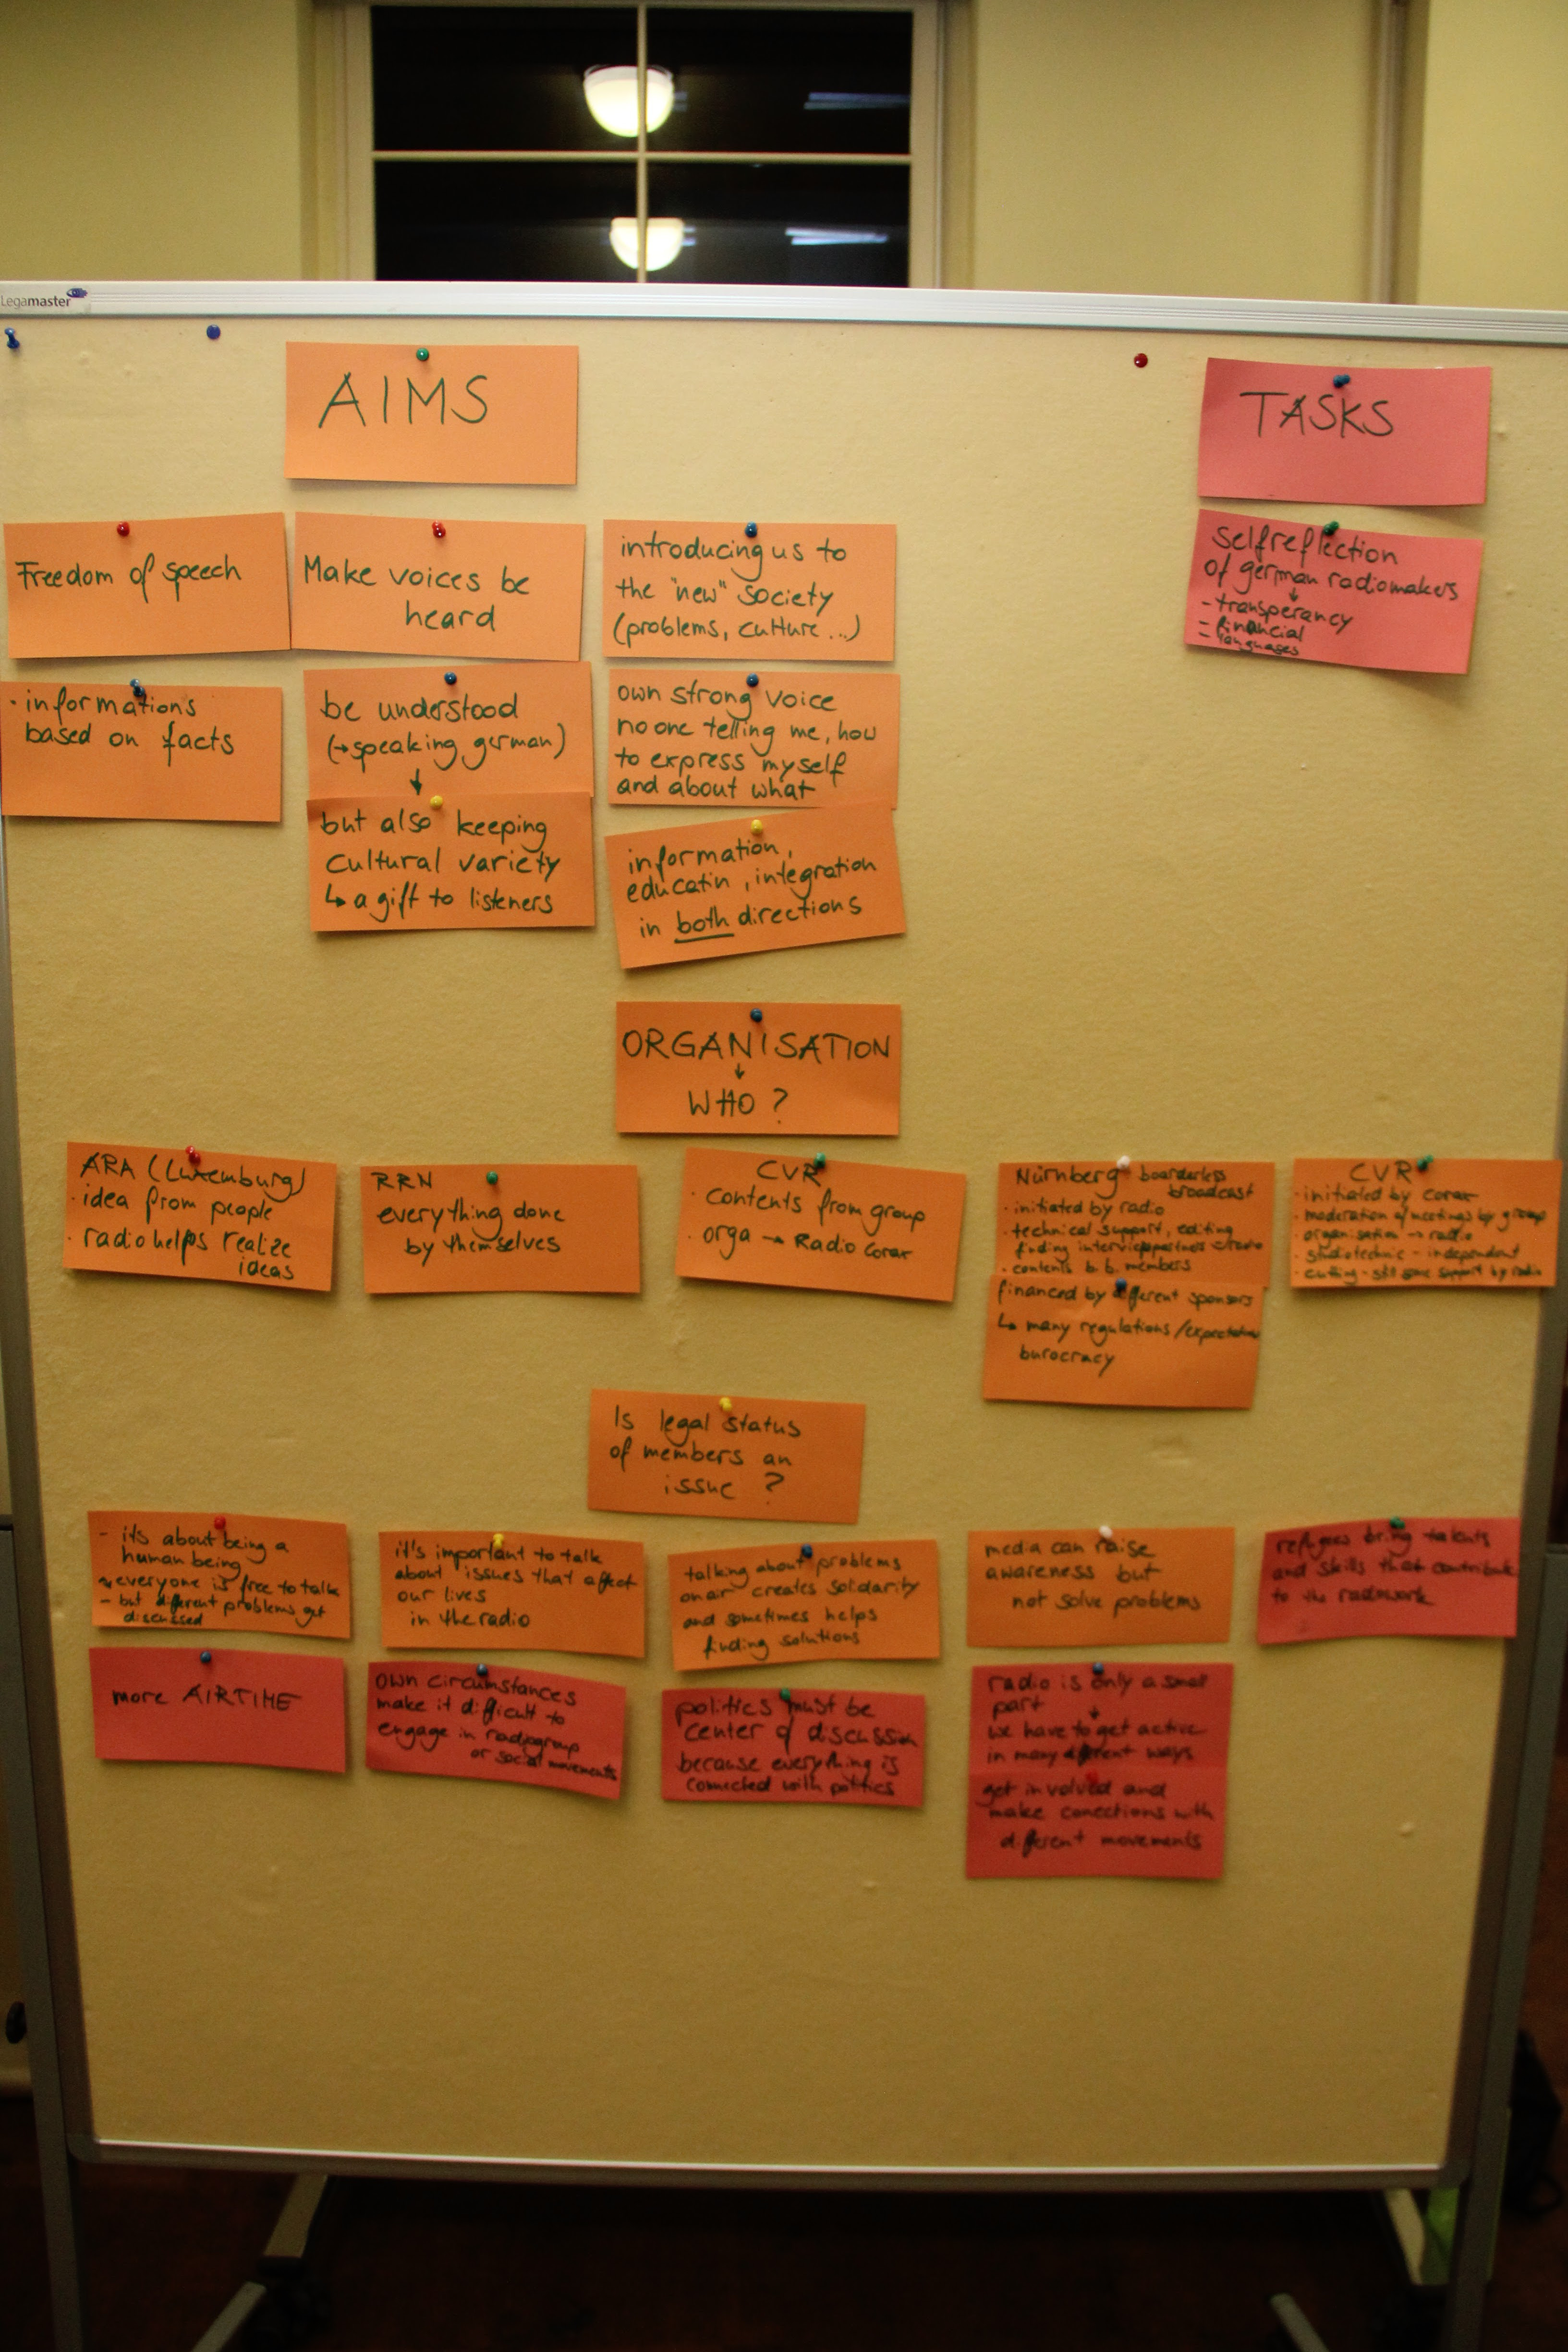 Legamaster
AIMS
TASKS
Freedom of speech
Make voices be
heard
introducing us to
the "new" society
(problems, culture...)
selfreflection
of german radiomakers
↓
- transperancy
- financial
- languages
· informations
based on facts
be understood
(→speaking german)
↓
but also keeping
cultural variety
↳ a gift to listeners
own strong voice
no one telling me, how
to express myself
and about what
information,
educatin, integration
in both directions
ORGANISATION
↓
WHO?
ARA (Luxemburg)
· idea from people
· radio helps realize
ideas
RRN
everything done
by themselves
CVR
· contents from group
· orga → Radio Corax
Nürnberg boarderless
broadcast
· initiated by radio
· technical support, editing
finding interviewpartners
· contents b.b. members
financed by different sponsors
↳ many regulations /expectations
burocracy
CVR
· initiated by corax
· moderation of meetings by group
· organisation → radio
· studiotechnic - independent
· cutting - still some support by radio
Is legal status
of members an
issue?
- it's about being a
human being
everyone is free to talk
- but different problems get
discussed
it's important to talk
about issues that affect
our lives
in the radio
talking about problems
onair creates solidarity
and sometimes helps
finding solutions
media can raise
awareness but
not solve problems
refugees bring talents
and skills that contribute
to the radiowork
more AIRTIME
own circumstances
make it difficult to
engage in radiogroup
or social movements
politics must be
center of discussion
because everything is
connected with politics
radio is only a small
part
↓
we have to get active
in many different ways
get involved and
make conections with
different movements